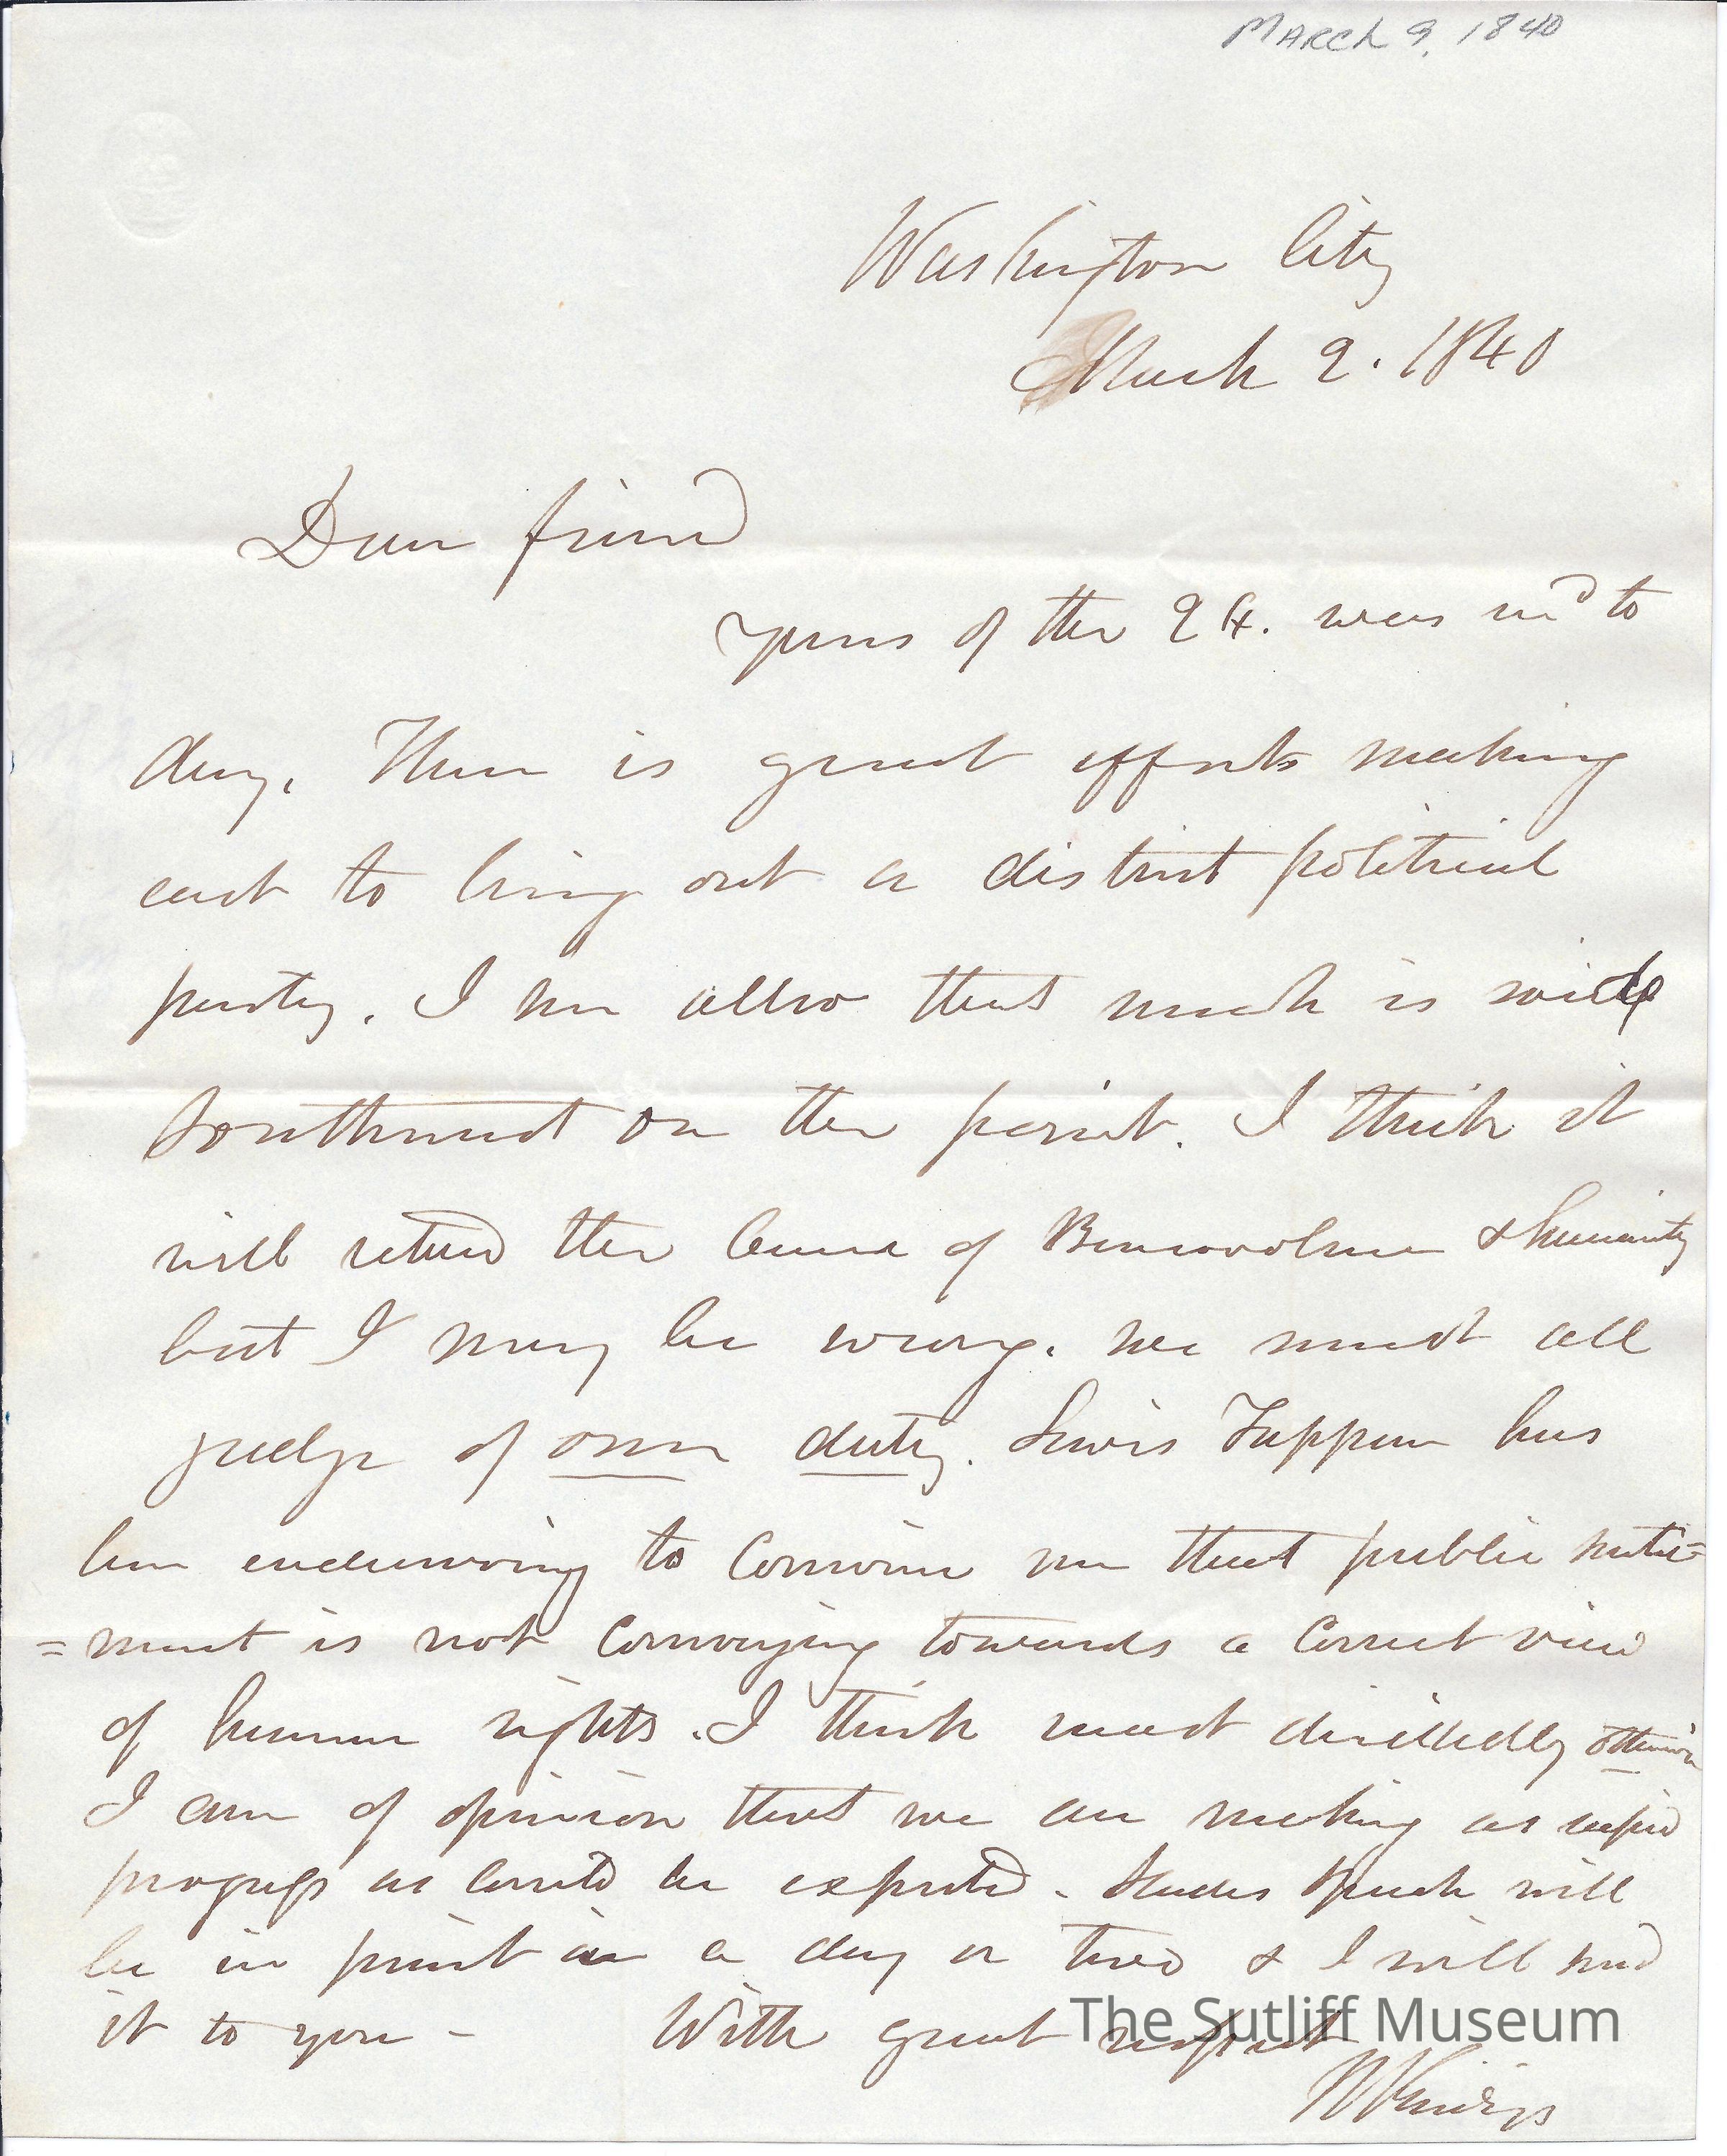 MARCH 9, 1840
Washington City
March 9. 1840
Dear friend
yours of the 24. was recd to
day. There is great efforts making
east to bring out a distinct political
party. I see allso that much is said
Southwest on the point. I think it
will retard the Cause of Benevolence & humanity
but I may be wrong. we must all
judge of our duty. Lewis Tappan has
been endeavoring to Convince me that public senti=
=ment is not Converging towards a Correct view
of human rights. I think most decidedly otherwise
I am of opinion that we are making as rapid
progress as Could be expected. Slades Speech will
be in print in a day or two & I will send
it to you - With great respect
The Sutliff Museum